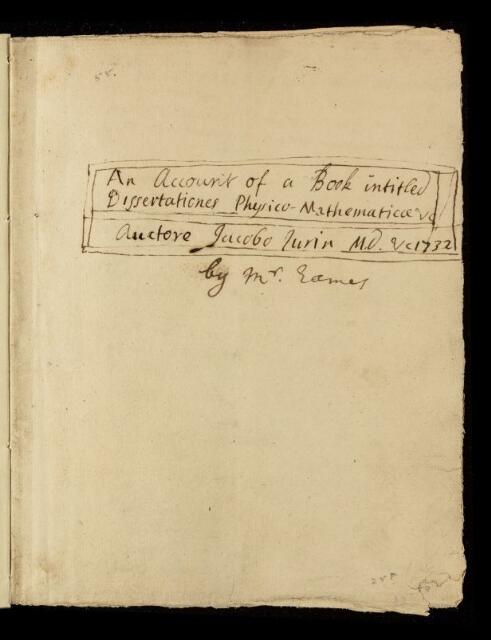 An Account of a Book intitled
Dissertationes Physico-Mathematicæ &c
Auctore Jacobo Jurin M.D. &c 1732
by Mr. Eames